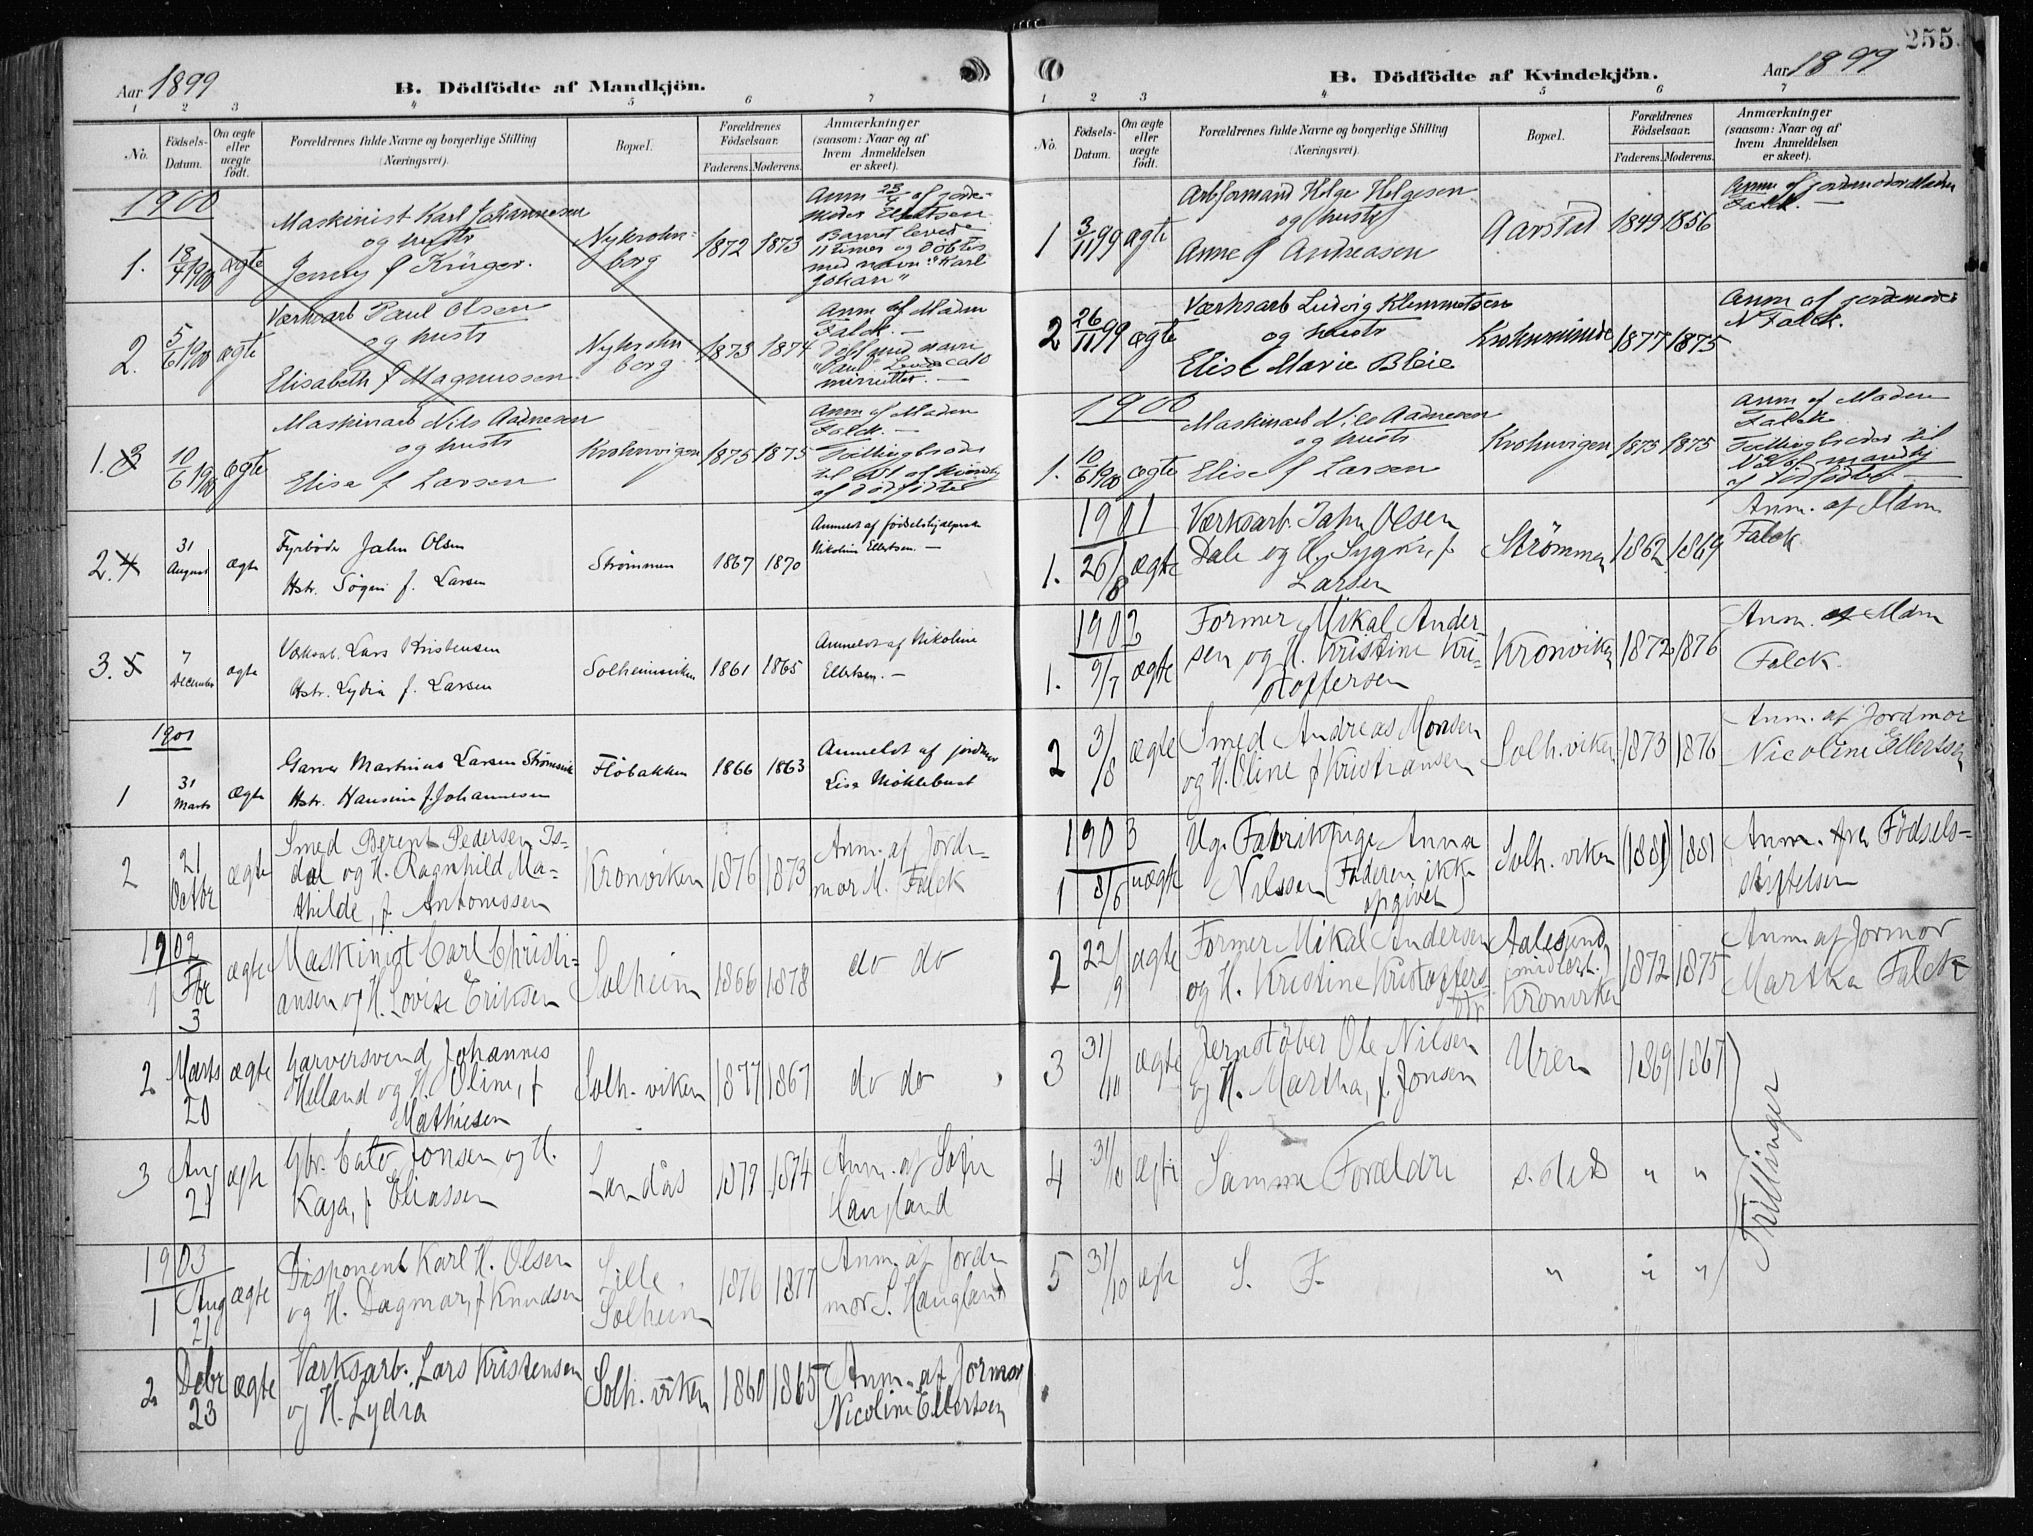 255.
Aar 1899
B. Dödfödte af Mandkjön.
1 2 3 4 5 6 7
No.
Födsels-Datum.
Om ægte eller uægte födt.
Forældrenes fulde Navne og borgerlige Stilling (Næringsvei).
Bopæl.
Forældrenes Födselsaar.
Faderens. Moderens.
Anmærkninger (saasom: Naar og af hvem Anmeldelsen er skeet).
1900
1. 18/4 1900 ægte
Maskinist Karl Johannesen
og hustr
Jenny f Krüger.
Nykrohnborg 1872 1873
Anm 23/4 af jordemoder Ellertsen
Barnet levede
11 timer og döbtes
med navn "Karl
Johan"
2. 5/6 1900 ægte
Værksarb Paul Olsen
og hustr
Elisabeth f Magnussen
Nykrohnborg 1873 1874
Anm af Madm
Falck. —
Döbt med navn
"Paul" Levede ca 10
minutter. —
1. 3 10/6 1900 ægte
Maskinarb Nils Aadnesen
og hustr
Elise f Larsen
Krohnvigen 1875 1875
Anm af Madm
Falck. —
af dödfödte
2. 4 31 August ægte
Fyrböder John Olsen
Hstr. Sögni f. Larsen
Strömmen 1867 1870
Anmeldt af födselshjælperske
Nikoline Ellertsen. —
3. 5 7 December ægte
Værksarb. Lars Kristensen
Hstr. Lydia f. Larsen
Solheimsviken 1861 1865
Anmeldt af Nikoline
Ellertsen. —
1901
1 31 Marts ægte
Garver Martinus Larsen Strömsvik
Hstr. Hansine f. Johannesen
Flöbakken 1866 1863
Anmeldt af jordmor
Lisa Möklebust
2 21 Octbr ægte
Smed Berent Pedersen Is-
dal og H. Ragnhild Ma-
thilde, f. Antonissen
Kronviken 1876 1873
Anm. af Jorde-
mor M. Falck
1902
1 Fbr 3 ægte
Maskinist Carl Christi-
ansen og H. Lovise Eriksen
Solheim 1866 1878
do do
2 Marts 20 ægte
Garversvend Johannes
Helland og H. Oline, f
Mathiesen
Solh. viken 1877 1867
do do
3 Aug 21 ægte
Gbr. Cato Jonsen og H.
Kaja, f Eliassen
Landås 1877 1874
Anm. af Sofie
Haugland
1903
1 Aug 21 ægte
Disponent Karl H. Olsen
og H. Dagmar, f Knudsen
Lille
Solheim
1876 1877
Anm. af Jorde
mor S. Haugland
2 Debr 23 ægte
Værksarb. Lars Kristensen
og H. Lydia
Solh. viken 1860 1865
Anm. af Jormor
Nicoline Ellertsen
B. Dödfödte af Kvindekjön.
Aar 1899
1 2 3 4 5 6 7
No.
Födsels-Datum.
Om ægte eller uægte födt.
Forældrenes fulde Navne og borgerlige Stilling (Næringsvei).
Bopæl.
Forældrenes Födselsaar.
Faderens. Moderens.
Anmærkninger (saasom: Naar og af hvem Anmeldelsen er skeet).
1 3/11 99 ægte
Arbformand Helge Helgesen
og hustr
Anne f Andreasen
Aarstad 1849 1856
Anm af jordemoder Madm
Falck. —
2 26/11 99 ægte
Værksarb Ludvig Klemmetsen
og hustr
Elise Marie Bleie
Krohnminde 1877 1875
Anm af jordemoder
Falck.
1900
1. 10/6 1900 ægte
Maskinarb Nils Aadnesen
og hustr
Elise f Larsen
Krohnvigen 1875 1875
Anm af Madm
Falck
1901
1. 26/8 ægte
Værksarb. John Olsen
Dale og H. Sygni, f.
Larsen
Strömmen 1862 1869
Anm. af Mdm
Falck
1902
1. 9/7 ægte
Former Mikal Ander-
sen og H. Kristine Kri-
stoffersen
Kronviken 1872 1876
Anm. af Mdm
Falck.
2 3/8 ægte
Smed Andreas Monsen
og H. Oline f Kristiansen
Solh. viken 1873 1876
Anm. af Jordmor
Nicoline Ellertsen
1903
1 8/6 uægte
Ug. Fabrikpige Anna
Nilssen (Faderen ikke
opgivet)
Solh. viken (1881) 1881
Anm. fra Födsels-
stiftelsen
2 22/9 ægte
Former Mikal Andersen
og H. Kristine Kristoffers
dtr
Aalesund
(midlert.)
Kronviken
1872 1875
Anm. af Jormor
Martha Falck
3 31/10 ægte
Jernstöber Ole Nilsen
og H. Martha, f. Jonsen
Uren 1869 1867
4 31/10 ægte
Samme Forældre
s. sted " "
5 31/10 ægte
S. F. " " "
Trillinger